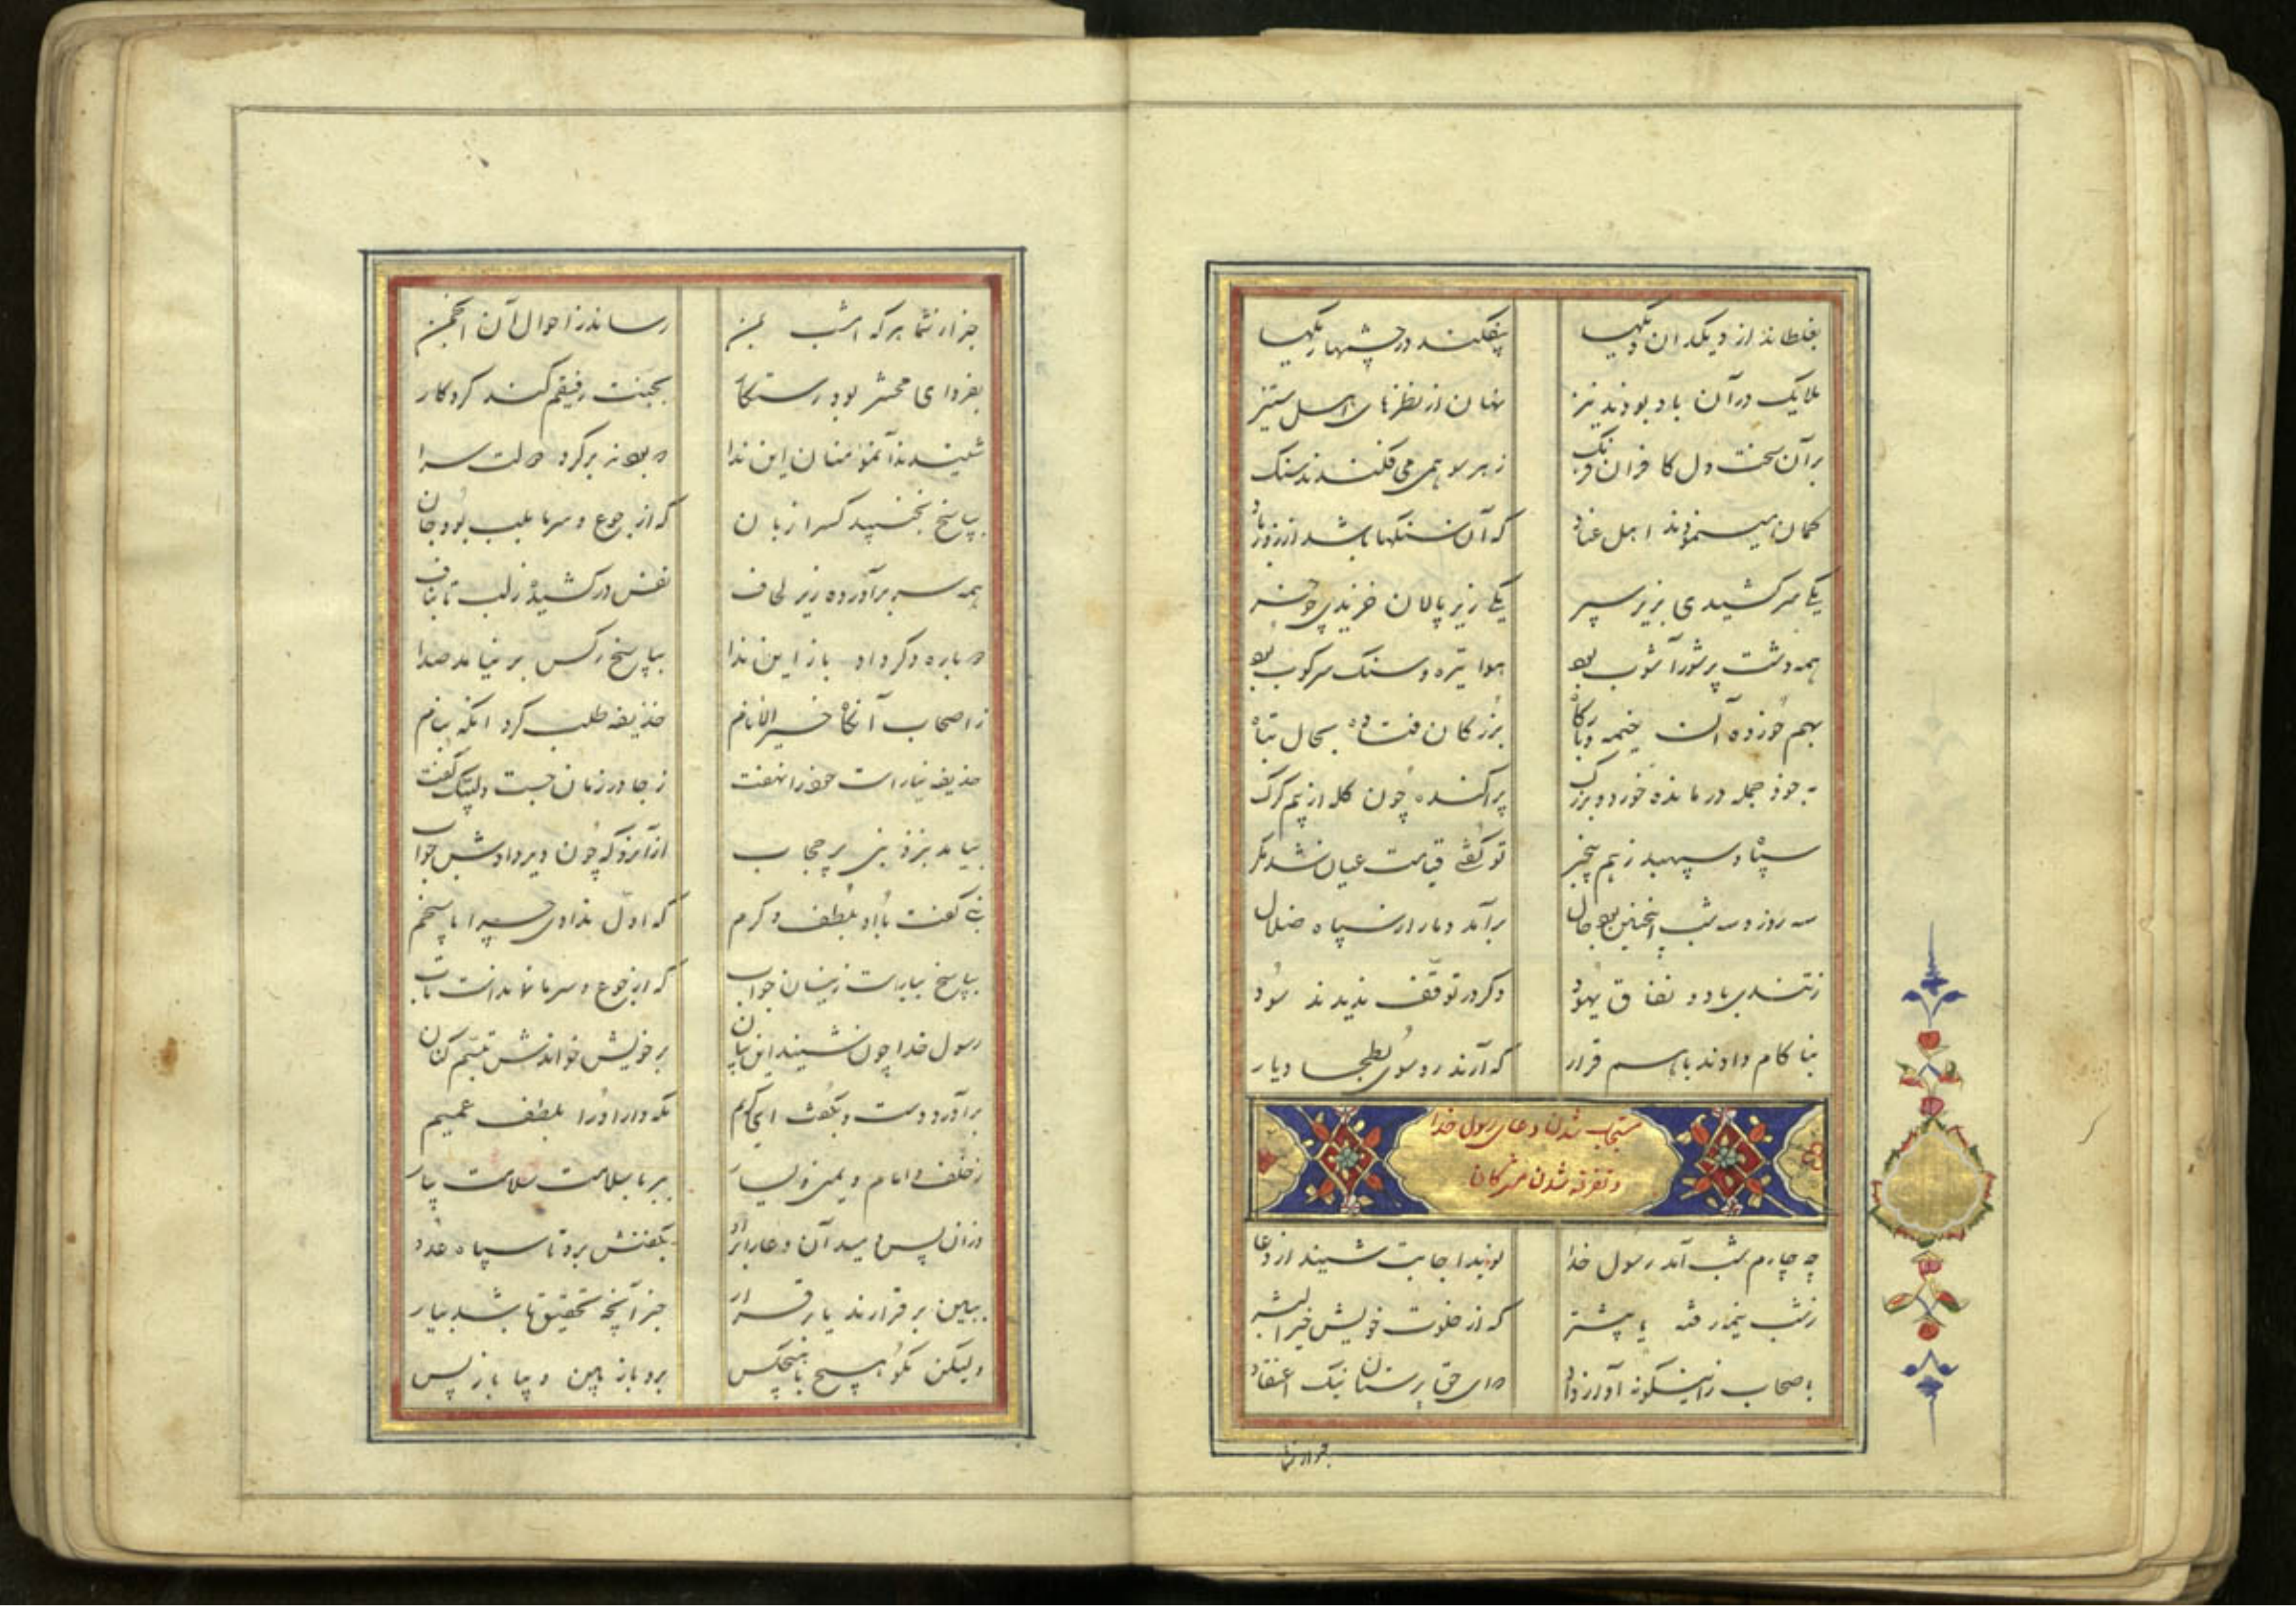 بغلطاند از دیکدان دیکها بیفکند در چشمها ریکها
ملایک در آن باد بودند نیز نهان از نظرهای اهل ستیز
بر آن سخت دل کافران درنک ز هر سو همی می فکندند سنک
کمان مینمودند اهل عناد که آن سنکها باشد از زور باد
یکی سر کشیدی بزیر سپر یکی زیر پالان خزیدی چو خر
همه دشت پرشور آشوب بود هوا تیره و سنک سرکوب بود
بهم خورده آلت خیمه و بارکاه بزرکان فتاده بحال تباه
بخود جمله درمانده خورد و بزرک پراکنده چون کله از بیم کرک
سپاه و سپهبد ز هم بیخبر تو کفتی قیامت عیان شد مکر
سه روز و سه شب اینچنین بود حال برآمد دمار از سپاه ضلال
ز تندی باد و نفاق یهود دکر در توقف ندیدند سود
بناکام دادند باهم قرار که آرند رو سوی بطحا دیار
مستجاب شدن دعای رسول خدا
و تفرقه شدن مشرکان
چه چارم شب آمد رسول خدا نوید اجابت شنید از دعا
ز شب نیم رفته یا پیشتر که از خلوت خویش خیر البشر
باصحاب زاینکونه آواز داد که ای حق پرستان نیک اعتقاد
هر ان از شما
هر ان از شما هر که امشب بمن رساند ز احوال آن انجمن
بفردای محشر بود رستکار بجنت رفیقم کند کردکار
شنیدند آن مومنان این ندا
بپاسخ نجنبید کس را زبان که از جوع و سرما بلب بود جان
همه سر برآورده زیر لحاف نفس درکشیده ز لب تا بناف
دوباره دکر داد باز این ندا بپاسخ ز کس بر نیامد صدا
ز اصحاب آنکاه خیر الانام حذیفه طلب کرد آنکه بنام
حذیفه نیارست خود را نهفت ز جا در زمان جست و لبیک کفت
بیامد بنزد نبی پر حجاب از آنرو که چون دیر دادش جواب
نبی کفت با او بلطف و کرم که اول ندادی چرا پاسخم
بپاسخ بیاراست زینسان جواب که از جوع و سرما نمانداست تاب
رسول خدا چون شنید این بیان بر خویش خواندش تبسم کنان
برآورد دست و بکفت ای کریم نکه دار او را بلطف عمیم
ز خلف و امام و یمین و یسار ببر با سلامت سلامت بیار
وزان پس دمید آن دعا را برو بکفتش برو تا سپاه عدو
ببین بر قرارند یا در فرار خبر آنچه تحقیق باشد بیار
ولیکن مکو هیچ با هیچکس برو باز بین و بیا باز پس